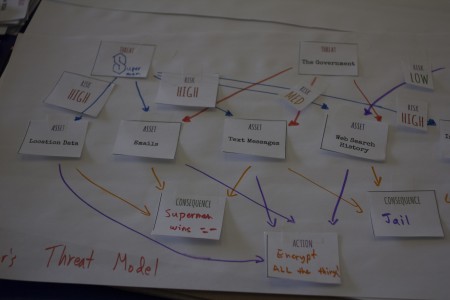 THREAT
Super
man
THREAT
The Government
RISK
LOW
RISK
HIGH
RISK
HIGH
RISK
MID
RISK
HIGH
ASSET
Location Data
ASSET
Emails
ASSET
Text Messages
ASSET
Web Search
History
CONSEQUENCE
Superman
wins
CONSEQUENCE
Jail
ACTION
Encrypt
ALL the things
's Threat Model